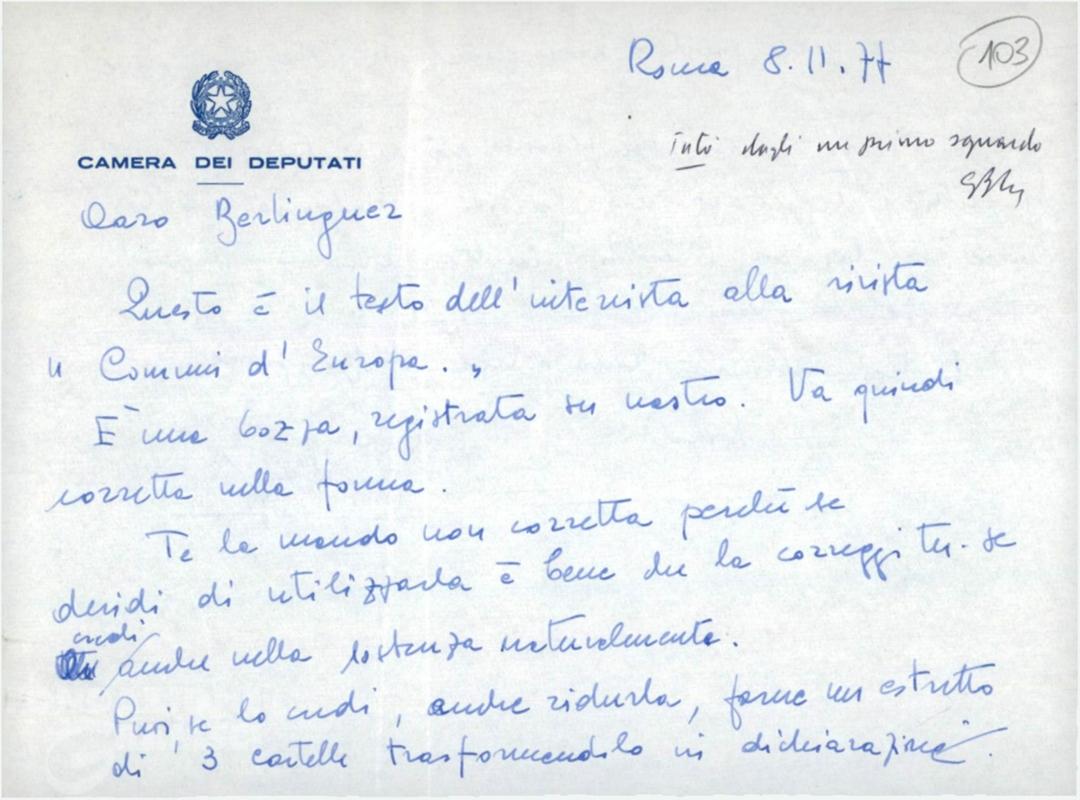 Roma 8.11.77
103
Tatò dagli un primo sguardo
CAMERA DEI DEPUTATI
Caro Berlinguer
Questo è il testo dell'intervista alla rivista
" Comuni d'Europa. "
È una bozza, registrata su nastro. Va quindi
corretta nella forma.
Te la mando non corretta perchè se
decidi di utilizzarla è bene che la correggi tu. se
credi
anche nella sostanza naturalmente.
Puoi, se lo credi, anche ridurla, farne un estratto
di 3 cartelle trasformandolo in dichiarazione.